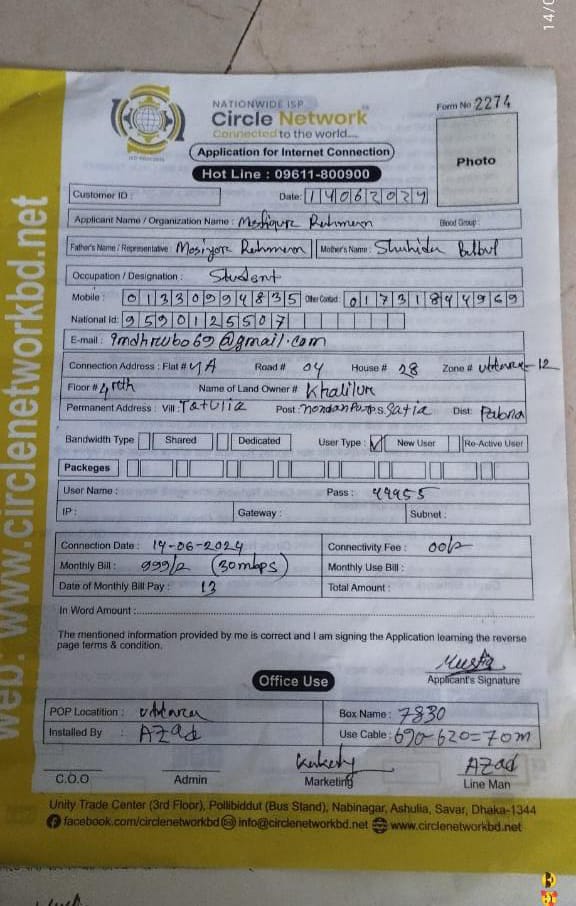 14/0
web: www.circlenetworkbd.net
NATIONWIDE ISP
Circle Network
Connected to the world....
Form No 2274
Application for Internet Connection
Hot Line : 09611-800900
Photo
Customer ID :
Date: 14062024
Applicant Name / Organization Name : Rehman Blood Group :
Father's Name / Representative : Rehman Mother's Name : Bulbul
Occupation / Designation : Student
Mobile : 01330994835 Other Contact : 01731844969
National Id: 9590125507
E-mail : @gmail.com
Connection Address : Flat # 4A Road # 04 House # 28 Zone # 12
Floor # 4rth Name of Land Owner # Khalilur
Permanent Address : Vill : Tetulia Post : P.s. Dist: Pabna
Bandwidth Type Shared Dedicated User Type : New User Re-Active User
Packeges
User Name : Pass : 44955
IP : Gateway : Subnet :
Connection Date : 14-06-2024 Connectivity Fee :
Monthly Bill : 999/2 (30mbps) Monthly Use Bill :
Date of Monthly Bill Pay : 13 Total Amount :
In Word Amount :
The mentioned information provided by me is correct and I am signing the Application learning the reverse
page terms & condition.
Applicant's Signature
Office Use
POP Locatition : Box Name : 7830
Installed By : AZad Use Cable : 690-620=70m
AZad
C.O.O Admin Marketing Line Man
Unity Trade Center (3rd Floor), Pollibiddut (Bus Stand), Nabinagar, Ashulia, Savar, Dhaka-1344
facebook.com/circlenetworkbd info@circlenetworkbd.net www.circlenetworkbd.net